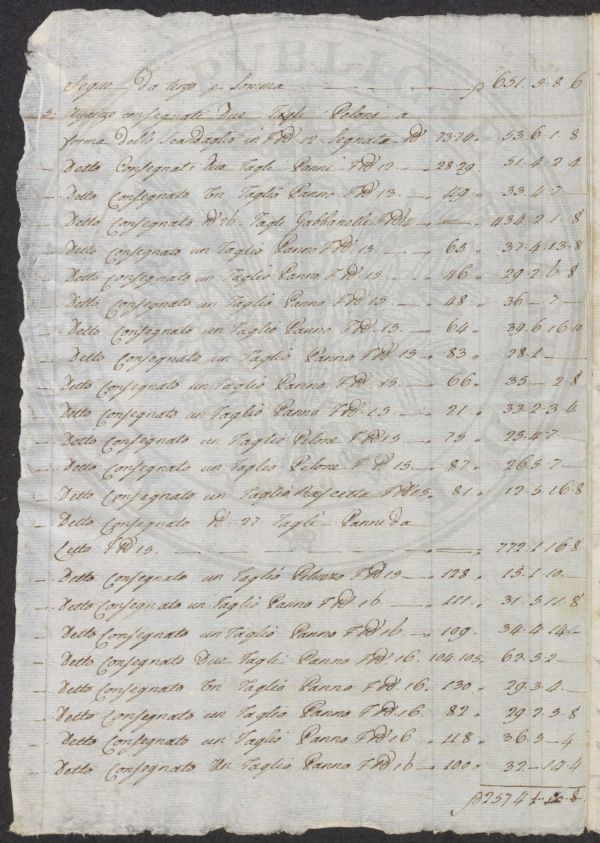 Segue Da tergo p. Somma — — ₰ 651. 5. 8. 6
consegnati Due Tagli Peloni a
forma dello Scandaglio in F Nº 12 - Segnata Nº 73. 74. 53. 6. 1. 8
— Detto Consegnati due Tagli Panni F Nº 12 — 28. 29. 51. 4. 2. 4
— Detto Consegnato Un Taglio Panno F Nº 13. — 49. 33. 4. 7 —
Detto Consegnato Nº 26. Tagli Gabbanelle F Nº 4 — 434. 2. 1. 8
— Detto Consegnato un Taglio Panno F Nº 13 — 63. 37. 4. 13. 8
— Detto Consegnato un Taglio Panno F Nº 13 — 46. 29. 2. 6. 8
— Detto Consegnato un Taglio Panno F Nº 13. — 48. 36 — 7 —
— Detto Consegnato un Taglio Panno F Nº 13. — 64. 39. 6. 16. 10
— Detto Consegnato un Taglio Panno F Nº 13. 83. 28. 1. —
— Detto Consegnato un Taglio Panno F Nº 13. — 66. 35 — 2. 8
— Detto Consegnato un Taglio Panno F Nº 13 — 21. 33. 2. 3. 4
— Detto Consegnato un Taglio Pelone F Nº 13 — 75. 25. 4. 7 —
— Detto Consegnato un Taglio Pelone F Nº 13. — 87. 26. 3. 7 —
— Detto Consegnato un Taglio Rascetta F Nº 13. 81. 12. 5. 16. 8
— Detto Consegnato Nº 27 Tagli Panni da
Letto F Nº 13. — — 772. 1. 16. 8
— Detto Consegnato un Taglio Peluzzo F Nº 13 — 128. 13. 1. 10. —
— Detto Consegnato un Taglio Panno F Nº 16 — 111. 31. 5. 11. 8
— Detto Consegnato un Taglio Panno F Nº 16. — 109. 34. 4. 14 —
— Detto Consegnato Due Tagli Panno F Nº 16. 104. 105. 62. 5. 2 —
— Detto Consegnato Un Taglio Panno F Nº 16. 130. 29. 3. 4. —
— Detto Consegnato un Taglio Panno F Nº 16. 82. 29. 2. 3. 8
— Detto Consegnato un Taglio Panno F Nº 16 — 118. 36. 3 — 4
— Detto Consegnato Un Taglio Panno F Nº 16 — 100. 32 — 14. 4
₰ 2574